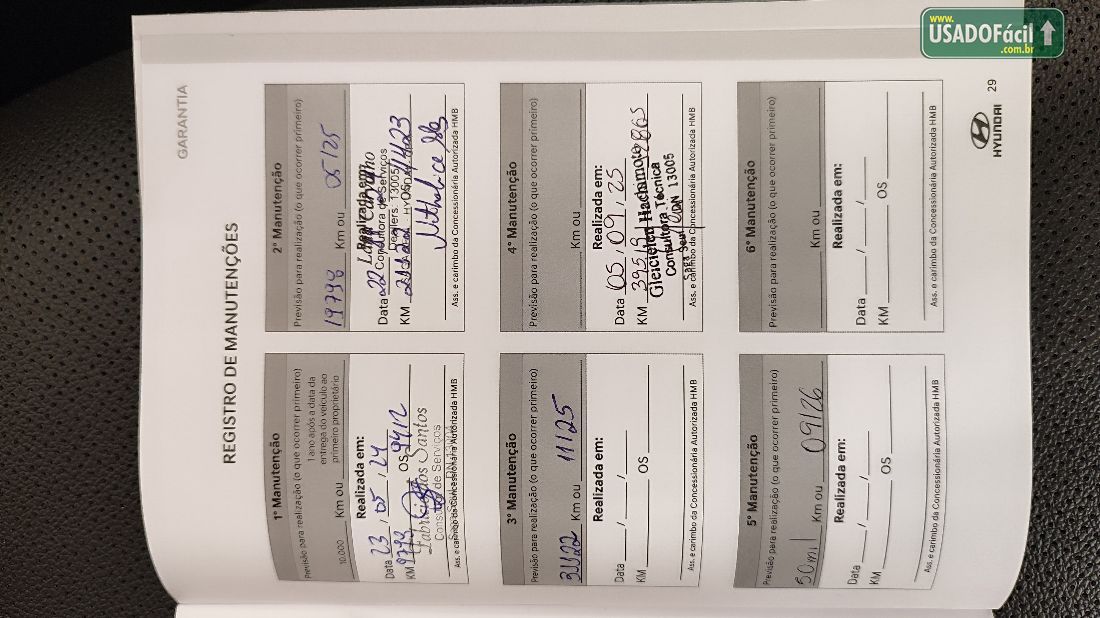 www.
USADOFácil
.com.br
GARANTIA
REGISTRO DE MANUTENÇÕES
1º Manutenção
Previsão para realização (o que ocorrer primeiro)
1 ano após a data da
entrega do veículo ao
primeiro proprietário
10.000 Km ou
Realizada em:
Data 23 / 05 / 24
KM 9793 OS 9412
Fabricio dos Santos
Consultor de Serviços
Ass. e carimbo da Concessionária Autorizada HMB
2º Manutenção
Previsão para realização (o que ocorrer primeiro)
19798 Km ou 05/25
Realizada em:
Data 22
Consultora de Serviços
Dealers: 13005
KM
Ass. e carimbo da Concessionária Autorizada HMB
3º Manutenção
Previsão para realização (o que ocorrer primeiro)
Km ou 11/25
Realizada em:
Data / /
KM OS
Ass. e carimbo da Concessionária Autorizada HMB
4º Manutenção
Previsão para realização (o que ocorrer primeiro)
Km ou
Realizada em:
Data 05 / 09 / 25
KM
Hachamoto
Consultora Técnica
CDN 13005
Ass. e carimbo da Concessionária Autorizada HMB
5º Manutenção
Previsão para realização (o que ocorrer primeiro)
50mil Km ou 09/26
Realizada em:
Data / /
KM OS
Ass. e carimbo da Concessionária Autorizada HMB
6º Manutenção
Previsão para realização (o que ocorrer primeiro)
Km ou
Realizada em:
Data / /
KM OS
Ass. e carimbo da Concessionária Autorizada HMB
HYUNDAI
29